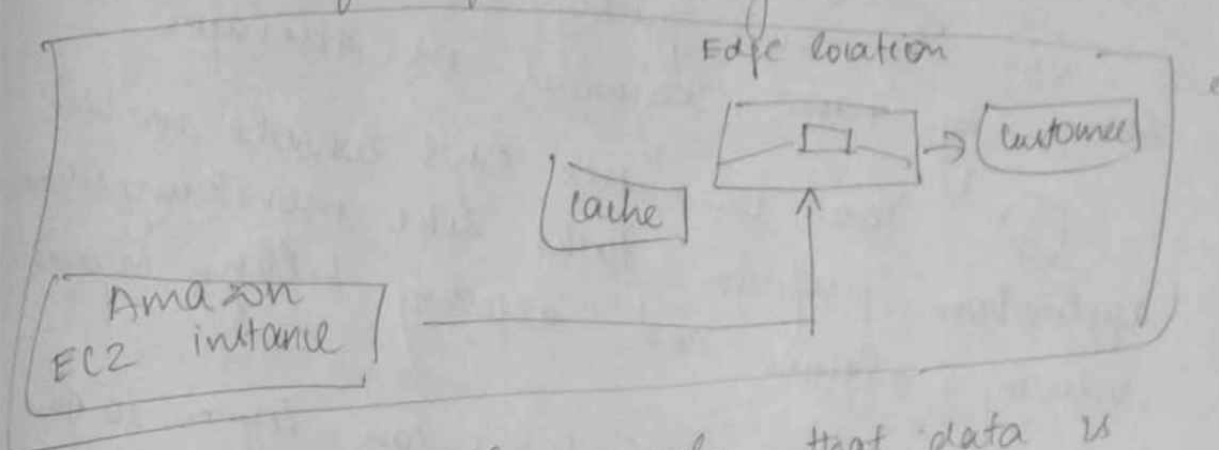 Edge location
Customer
Cache
Amazon
EC2 instance
that data is